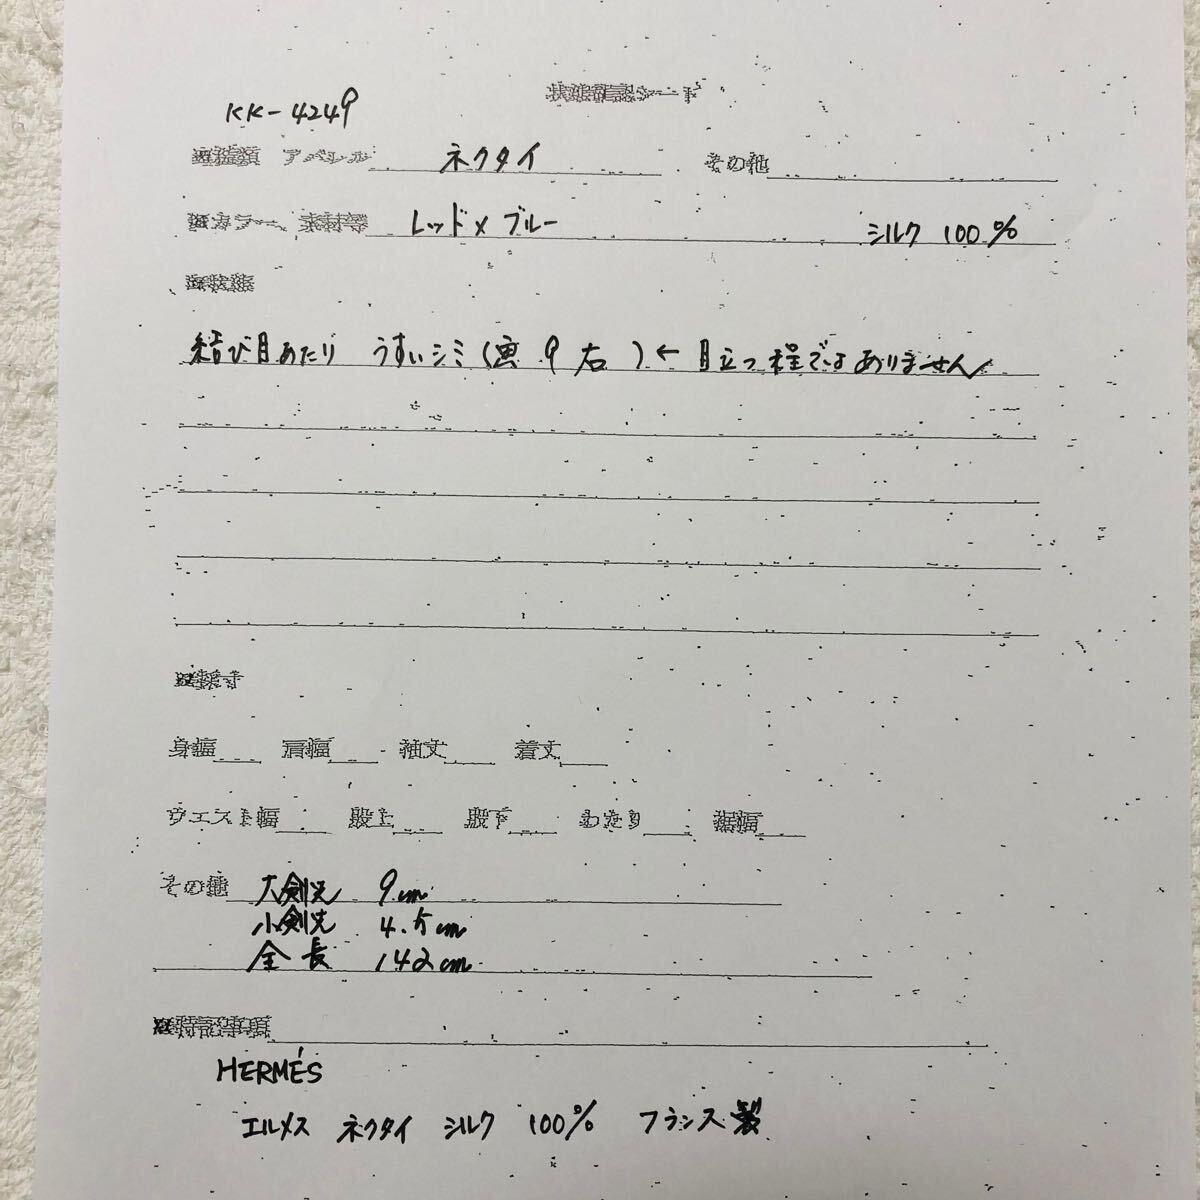 状態確認シート
KK-4249
種類 アパレル ネクタイ その他
カラー、素材等 レッド×ブルー シルク 100%
状態
結び目あたり うすいシミ(画 9 右 )← 目立つ程ではありません
採寸
身幅 肩幅 袖丈 着丈
ウエスト幅 股上 股下 わたり 裾幅
その他 大剣先 9cm
小剣先 4.5cm
全長 142cm
特記事項
HERMÉS
エルメス ネクタイ シルク 100% フランス製